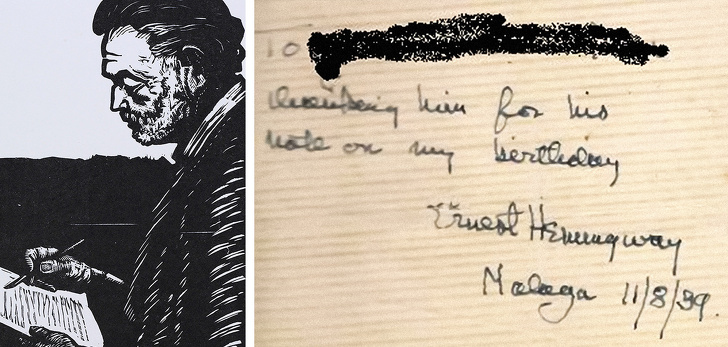 To
thanking him for his
note on my birthday
Ernest Hemingway
Malaga 11/8/59.